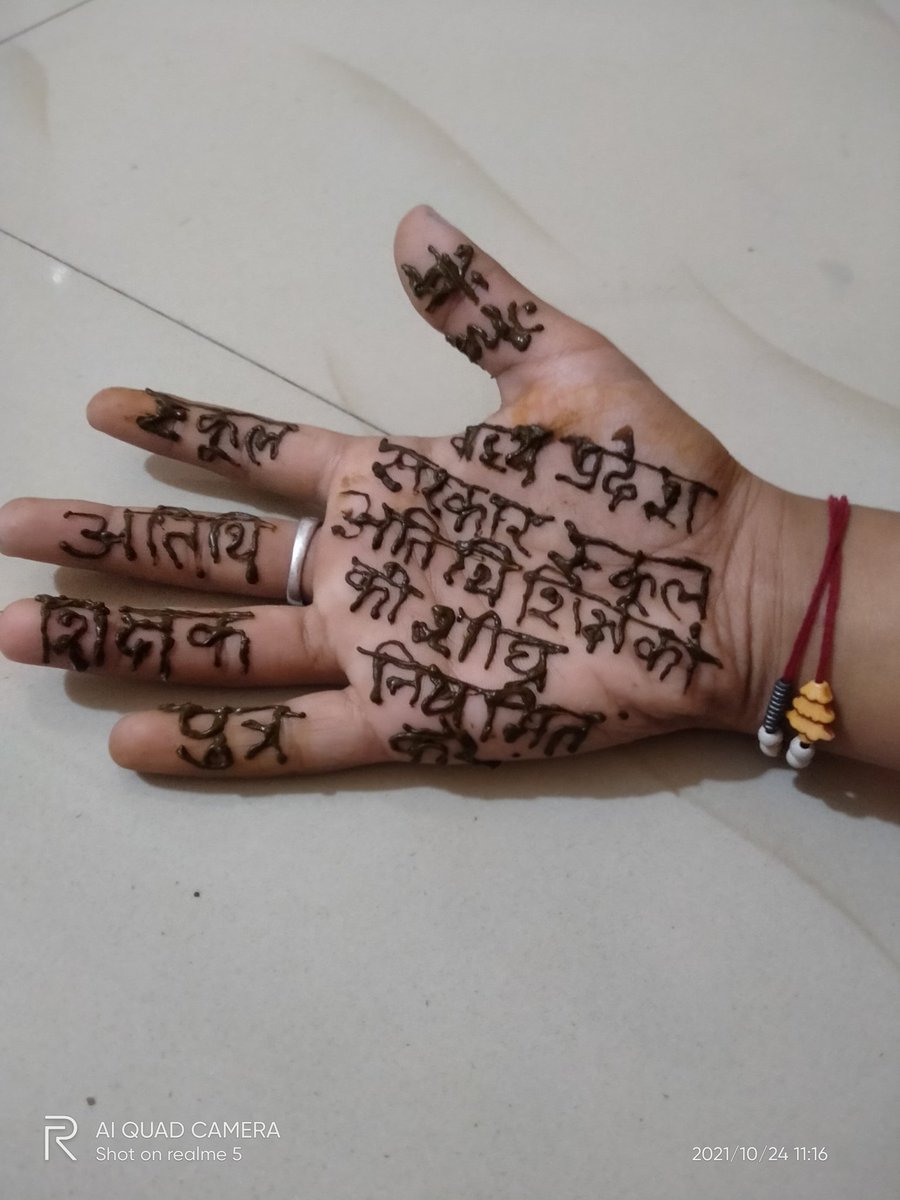 स्कूल
अतिथि
शिक्षक
मध्य प्रदेश
सरकार स्कूल
अतिथि शिक्षकों
को शीघ्र
नियमित
करें
AI QUAD CAMERA
Shot on realme 5
2021/10/24 11:16